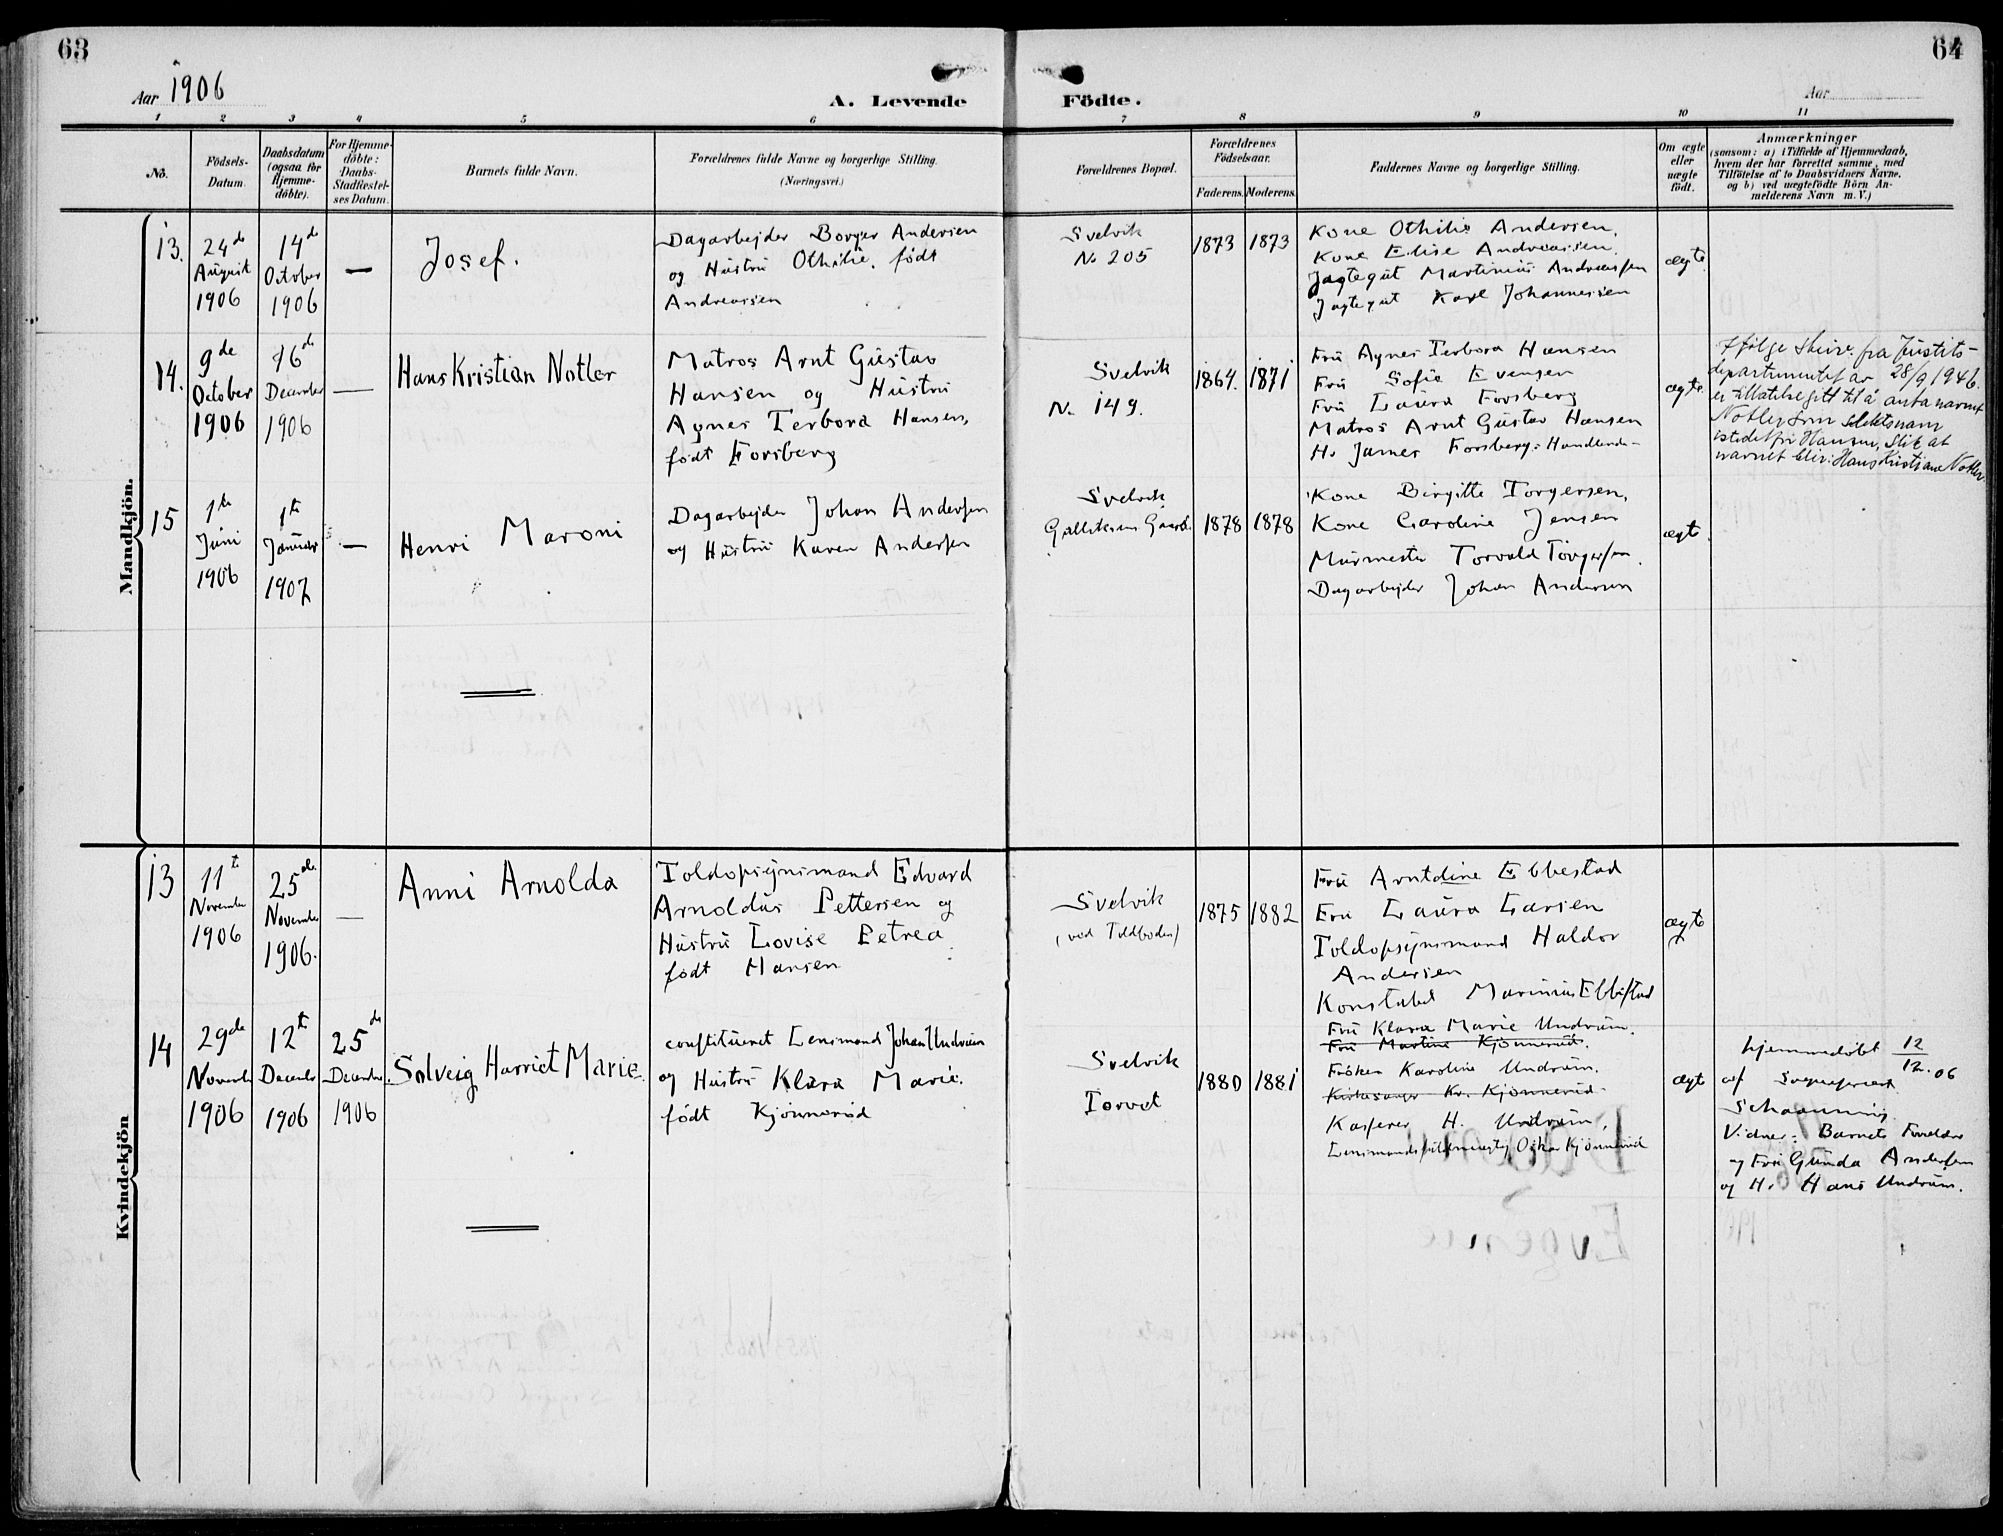 63
64
Aar 1906
A. Levende
Födte.
Aar
1
2
3
4
5
6
7
8
9
10
11
No.
Födsels-
Datum.
Daabsdatum
(ogsaa for
Hjemme-
döbte).
For Hjemme-
döbte:
Daabs-
Stadfæstel-
ses Datum.
Barnets fulde Navn.
Forældrenes fulde Navne og borgerlige Stilling.
(Næringsvei.)
Forældrenes Bopæl.
Forældrenes
Födselsaar.
Faderens.
Moderens.
Faddernes Navne og borgerlige Stilling.
Om ægte
eller
uægte
födt.
Anmærkninger
(saasom: a) i Tilfælde af Hjemmedaab,
hvem der har forrettet samme, med
Tilföielse af to Daabsvidners Navne,
og b) ved uægtefödte Börn An-
melderens Navn m. V.)
Mandkjön.
13.
24de
August
1906
14de
October
1906
—
Josef.
Dagarbejder Borger Andersen
og Hustru Othilie, født
Andreassen
Svelvik
No 205
1873
1873
Kone Othilie Andersen,
Kone Elise Andreassen
Jagtegut Martinius Andreassen
Jagtegut Karl Johannessen
ægte.
14.
9de
October
1906
16de
December
1906
—
Hans Kristian Notler
Matros Arnt Gustav
Hansen og Hustru
Agnes Terbora Hansen,
født Forsberg
Svelvik
No 149.
1864.
1871
Fru Agnes Terbora Hansen
Fru Sofie Evensen
Fru Laura Forsberg
Matros Arnt Gustav Hansen
H. James Forsberg: Handlende-
ægte.
Ifølge skriv. fra Justits-
departementet av 28/9 1946
er tillatelse gitt til å anta navnet
Notler som slektsnavn
istedetfor Hansen, slik at
navnet blir: Hans Kristian Notler
15
1te
Juni
1906
1te
Januar
1907
—
Henri Maroni
Dagarbejder Johan Andersen
og Hustru Karen Andersen
Svelvik
1878
1878
Kone Birgitte Torgersen,
Kone Caroline Jensen
Murmester Torvald Torgersen.
Dagarbejder Johan Andersen
ægte.
Kvindekjön
13
11te
November
1906
25de
November
1906.
—
Anni Arnolda
Toldopsynsmand Edvard
Arnoldus Pettersen og
Hustru Lovise Petrea
født Hansen
Svelvik
(ved Toldboden)
1875
1882
Fru Arntdine Ebbestad
Fru Laura Larsen
Toldopsynsmand Haldor
Andersen
Konstabel Marinius Ebbestad
ægte
14
29de
Novemb
1906
12te
Decembr
1906
25de
December
1906
Solveig Harriet Marie.
constitueret Lensmand Johan Undrum
og Hustru Klara Marie.
født Kjønnerød
Svelvik
Torvet
1880
1881
Fru Klara Marie Undrum.
Fru Martine Kjønnerød.
Frøken Karoline Undrum.
Kirkesanger Kr. Kjønnerød
Kasserer H. Undrum,
Lensmandsfuldmægtig Oskar Kjønnerød
ægte
hjemmedøbt 12/12.06
af Sognepræst
Schaanning.
Vidner: Barnets Forældre
og Fru Gunda Andersen
og H. Hans Undrum.